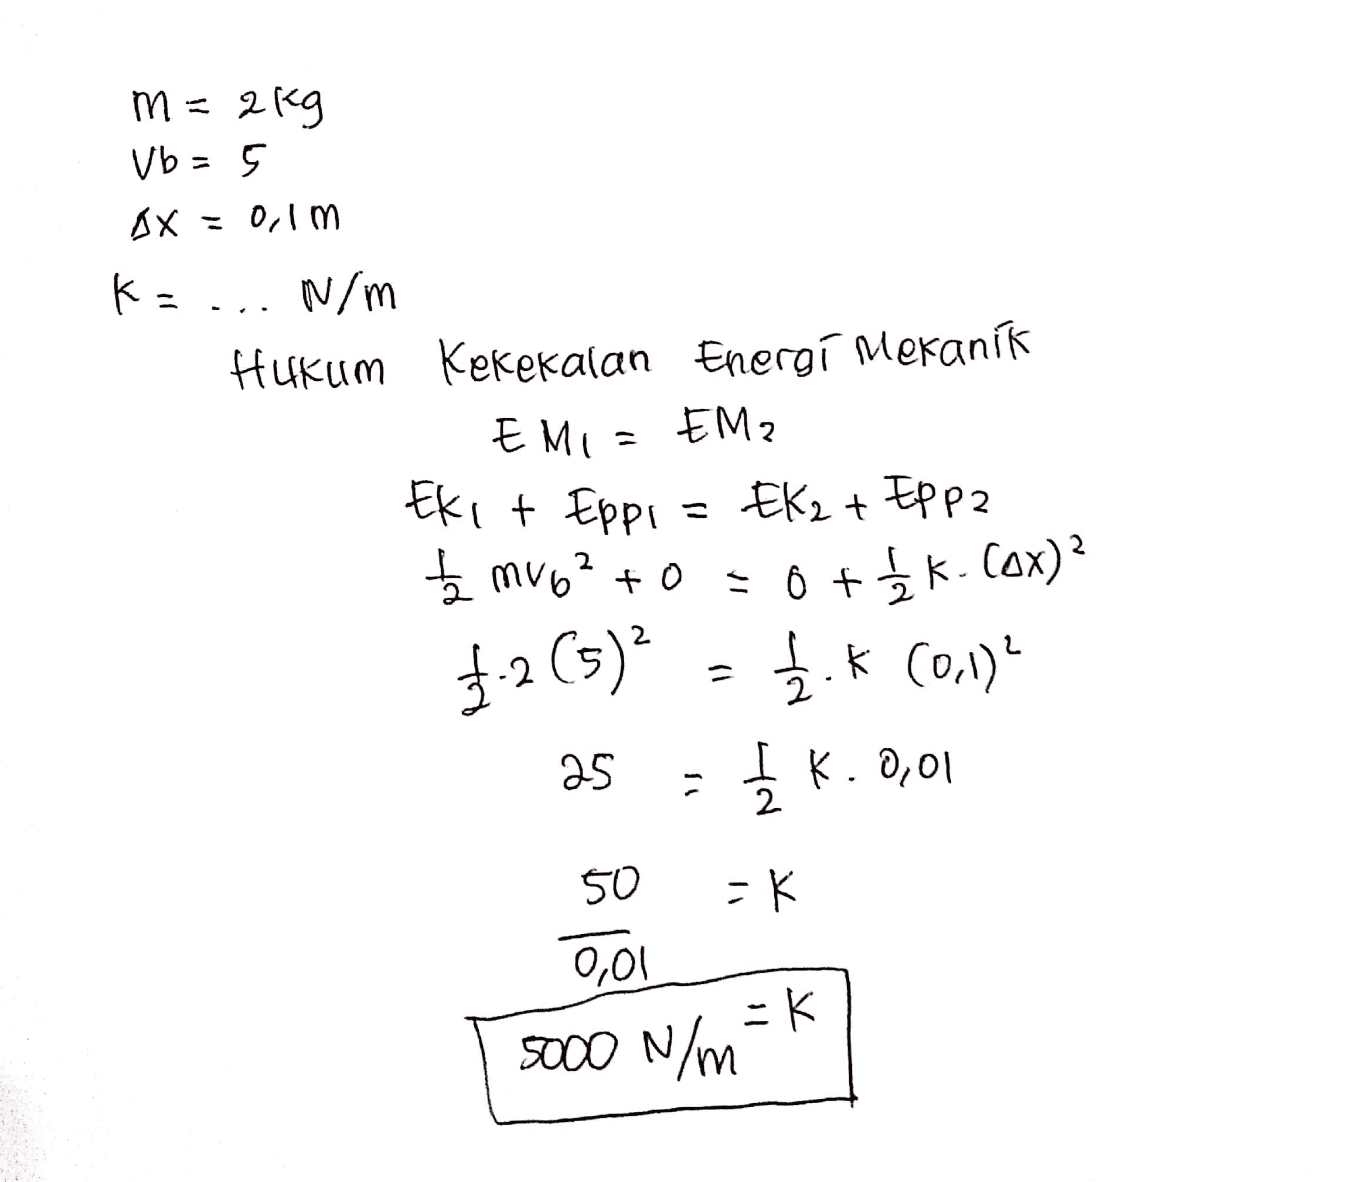 m = 2 kg
Vb = 5
Δx = 0,1 m
K = ... N/m
Hukum Kekekalan Energi Mekanik
EM1 = EM2
Ek1 + Epp1 = Ek2 + Epp2
1/2 mvb² + 0 = 0 + 1/2 k. (Δx)²
1/2 . 2 (5)² = 1/2 . k (0,1)²
25 = 1/2 k . 0,01
50/0,01 = K
5000 N/m = K